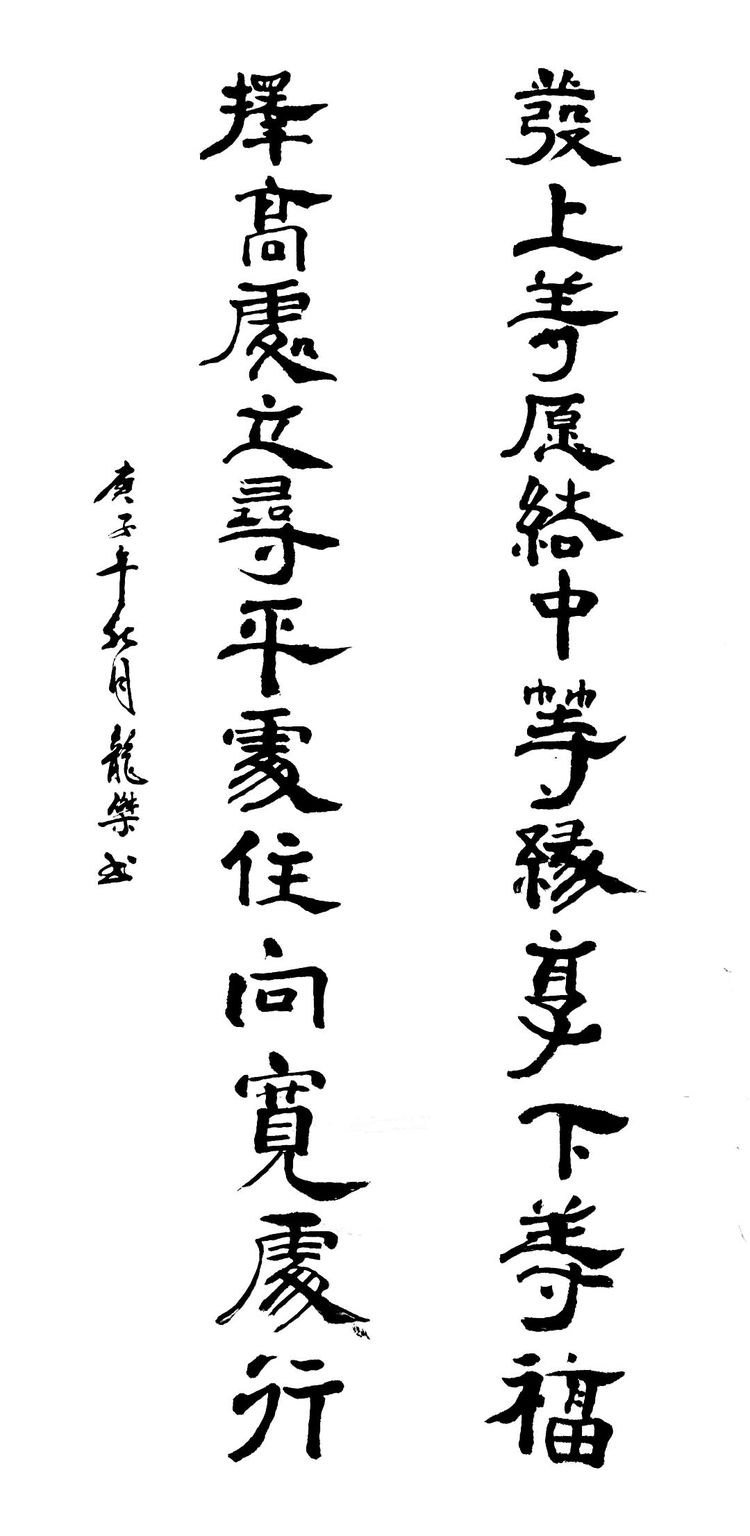 發上等愿結中等緣享下等福
擇高處立尋平處住向寬處行
庚子年秋月龍傑书